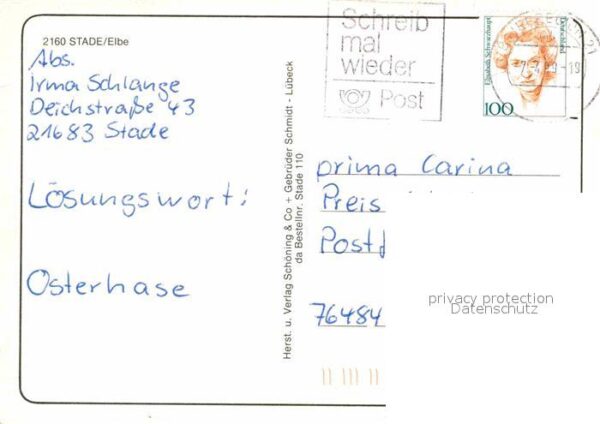 2160 STADE/Elbe
Abs.
Irma Schlange
Deichstraße 43
21683 Stade
Lösungswort:
Osterhase
Herst. u. Verlag Schöning & Co + Gebrüder Schmidt - Lübeck
da Bestellnr. Stade 110
Schreib
mal
wieder
Post
Elisabeth Schwarzhaupt
100
prima Carina
Preis
Post
76484
privacy protection
Datenschutz